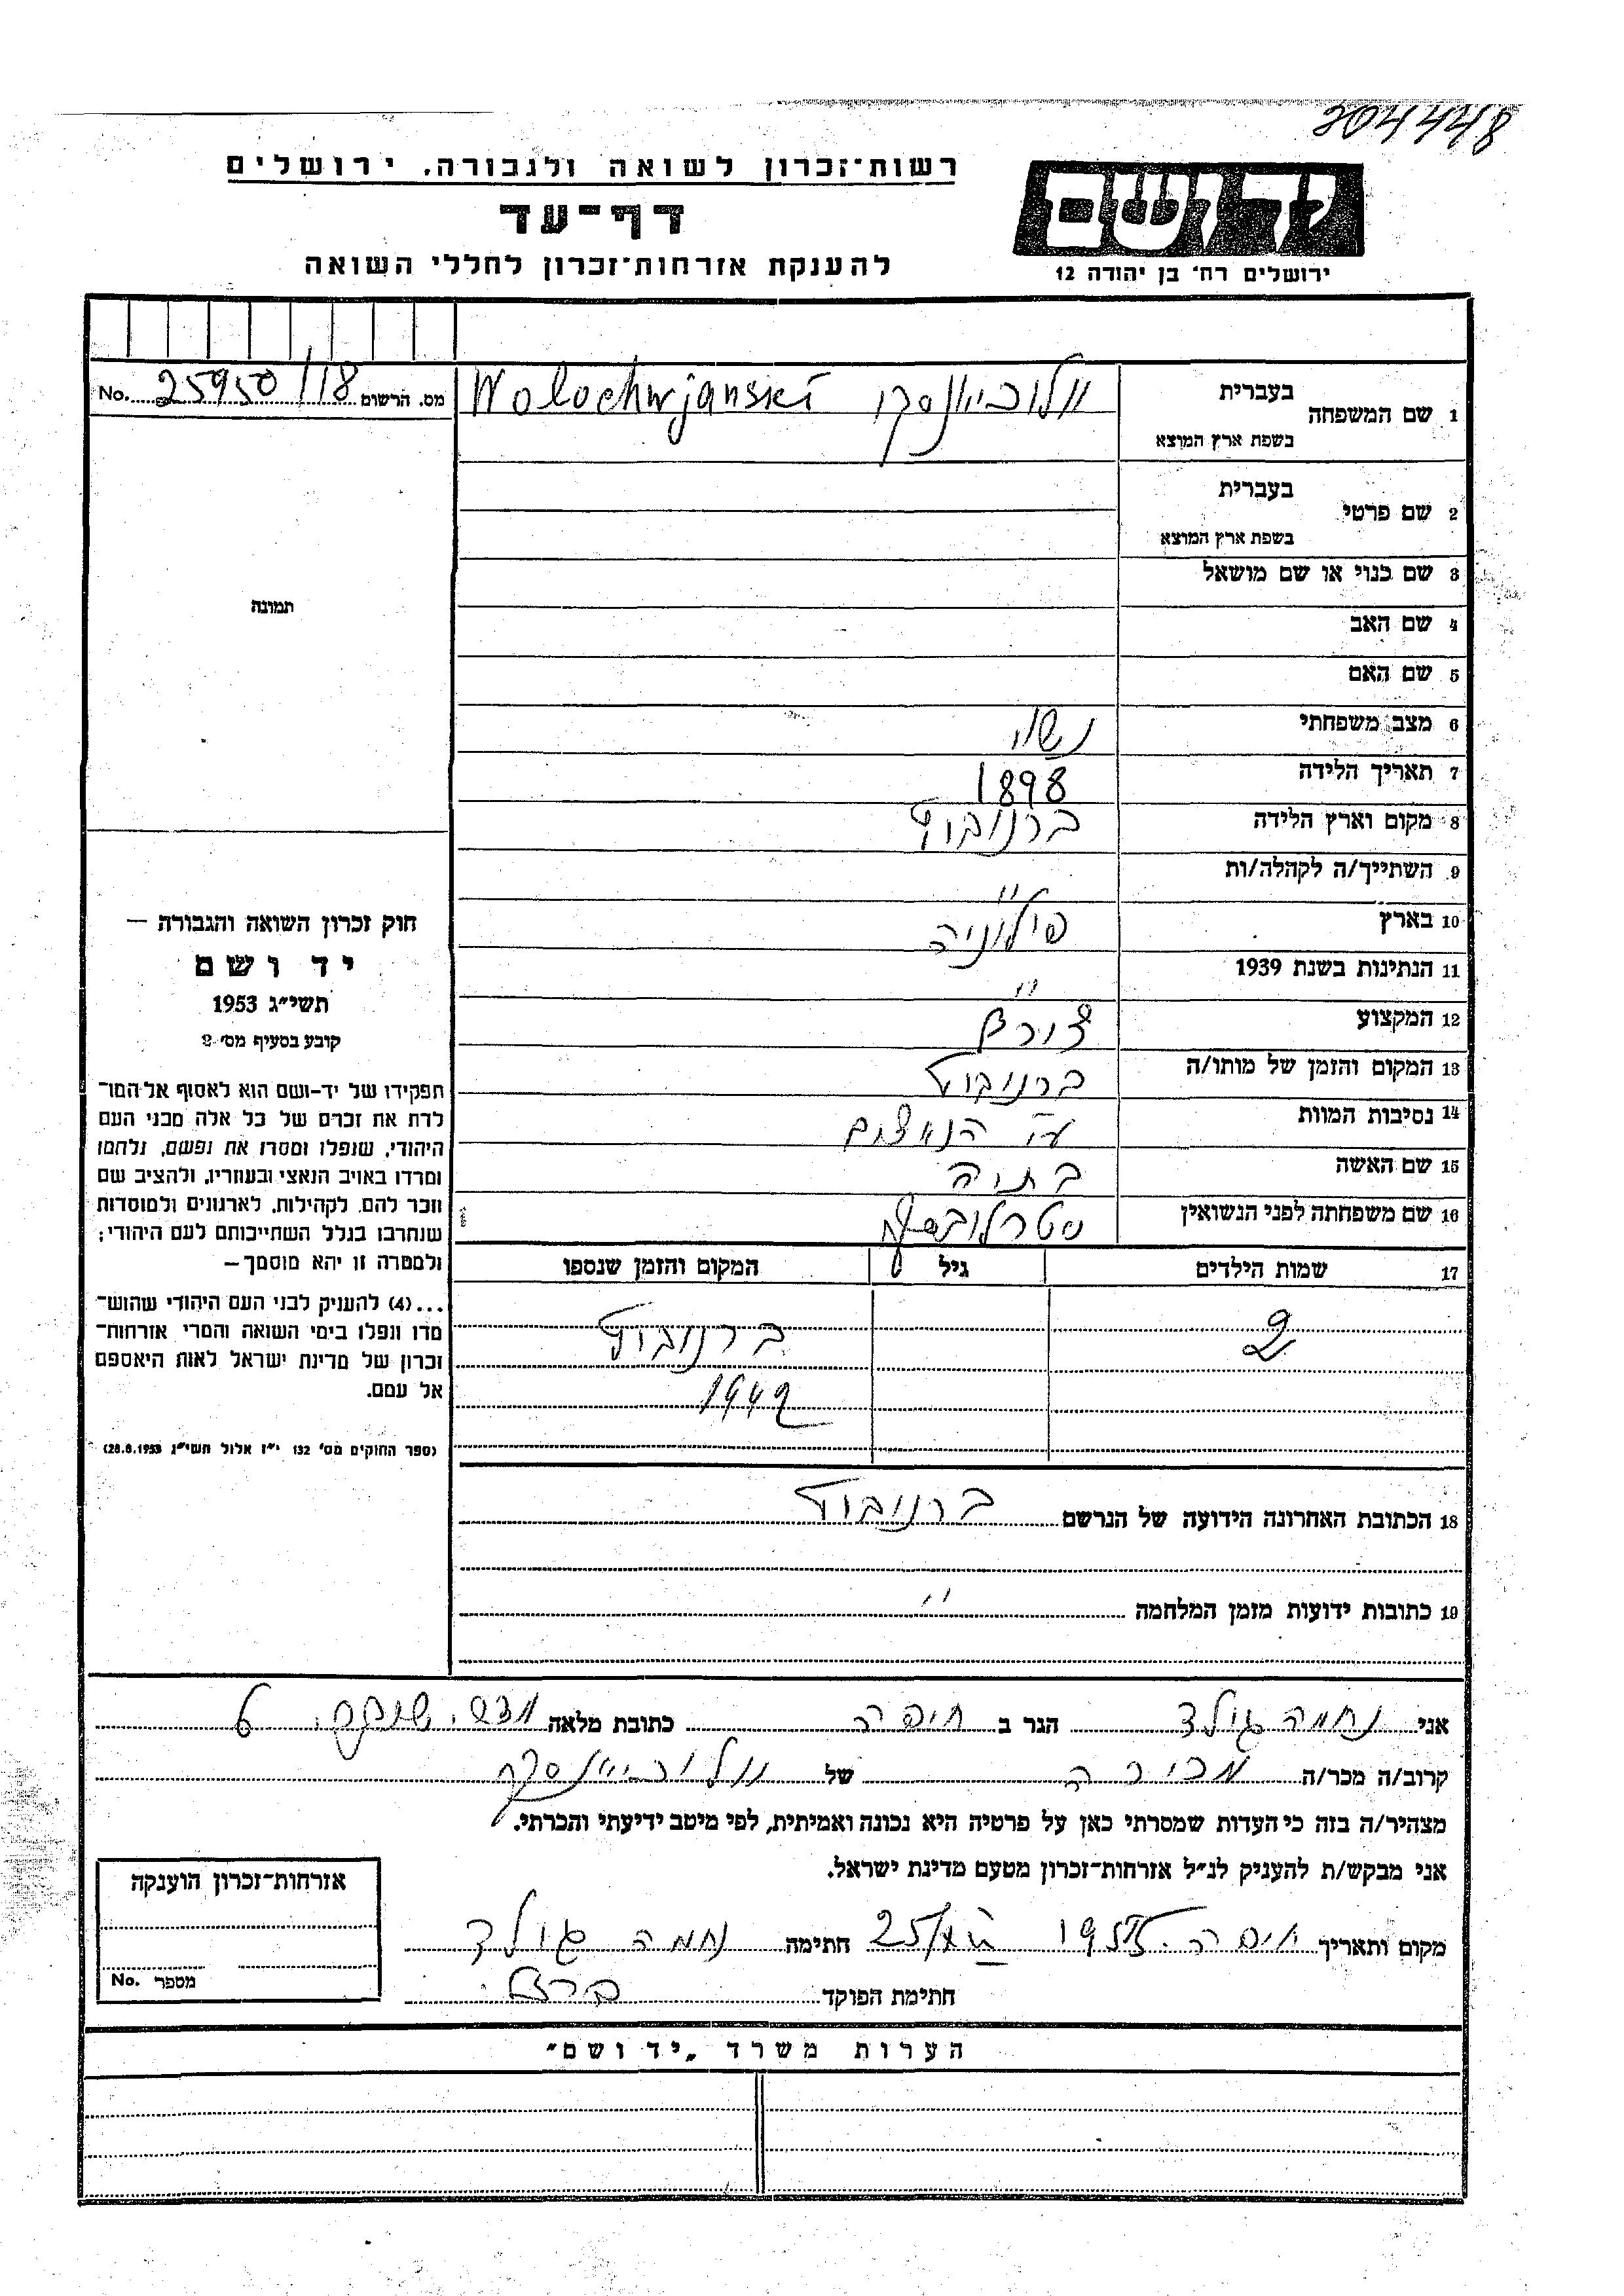 204448
רשות־זכרון לשואה ולגבורה, ירושלים
יד ושם
דף־עד
להענקת אזרחות־זכרון לחללי השואה
ירושלים רח׳ בן יהודה 12
1 שם המשפחה בעברית
בשפת ארץ המוצא
Wolochwjanski
מס. הרשום 25950/18 No.
2 שם פרטי בעברית
בשפת ארץ המוצא
3 שם כנוי או שם מושאל
4 שם האב
5 שם האם
6 מצב משפחתי נשוי
7 תאריך הלידה 1898
8 מקום וארץ הלידה ברנוביץ
9 השתייך/ה לקהלה/ות "
10 בארץ פולוניה
11 הנתינות בשנת 1939 "
12 המקצוע
13 המקום והזמן של מותו/ה ברנוביץ
14 נסיבות המוות ע"י הנאצים
15 שם האשה בתיה
16 שם משפחתה לפני הנשואין
17 שמות הילדים גיל המקום והזמן שנספו
2 ברנוביץ
1942
18 הכתובת האחרונה הידועה של הנרשם ברנוביץ
19 כתובות ידועות מזמן המלחמה "
תמונה
חוק זכרון השואה והגבורה —
יד ושם
תשי״ג 1953
קובע בסעיף מס׳ 2
תפקידו של יד־ושם הוא לאסוף אל המו־
לדת את זכרם של כל אלה מבני העם
היהודי, שנפלו ומסרו את נפשם, נלחמו
ומרדו באויב הנאצי ובעוזריו, ולהציב שם
וזכר להם, לקהילות, לארגונים ולמוסדות
שנחרבו בגלל השתייכותם לעם היהודי;
ולמטרה זו יהא מוסמך —
...(4) להעניק לבני העם היהודי שהוש־
מדו ונפלו בימי השואה והמרי אזרחות־
זכרון של מדינת ישראל לאות היאספם
אל עמם.
(ספר החוקים מס׳ 132 י״ז אלול תשי״ג 28.8.1953)
אני נחמה גולד הגר ב חיפה כתובת מלאה 6
קרוב/ה מכר/ה מכירה של
מצהיר/ה בזה כי העדות שמסרתי כאן על פרטיה היא נכונה ואמיתית, לפי מיטב ידיעתי והכרתי.
אני מבקש/ת להעניק לנ״ל אזרחות־זכרון מטעם מדינת ישראל.
מקום ותאריך חיפה חתימה נחמה גולד
חתימת הפוקד
אזרחות־זכרון הוענקה
מספר No.
הערות משרד „יד ושם״